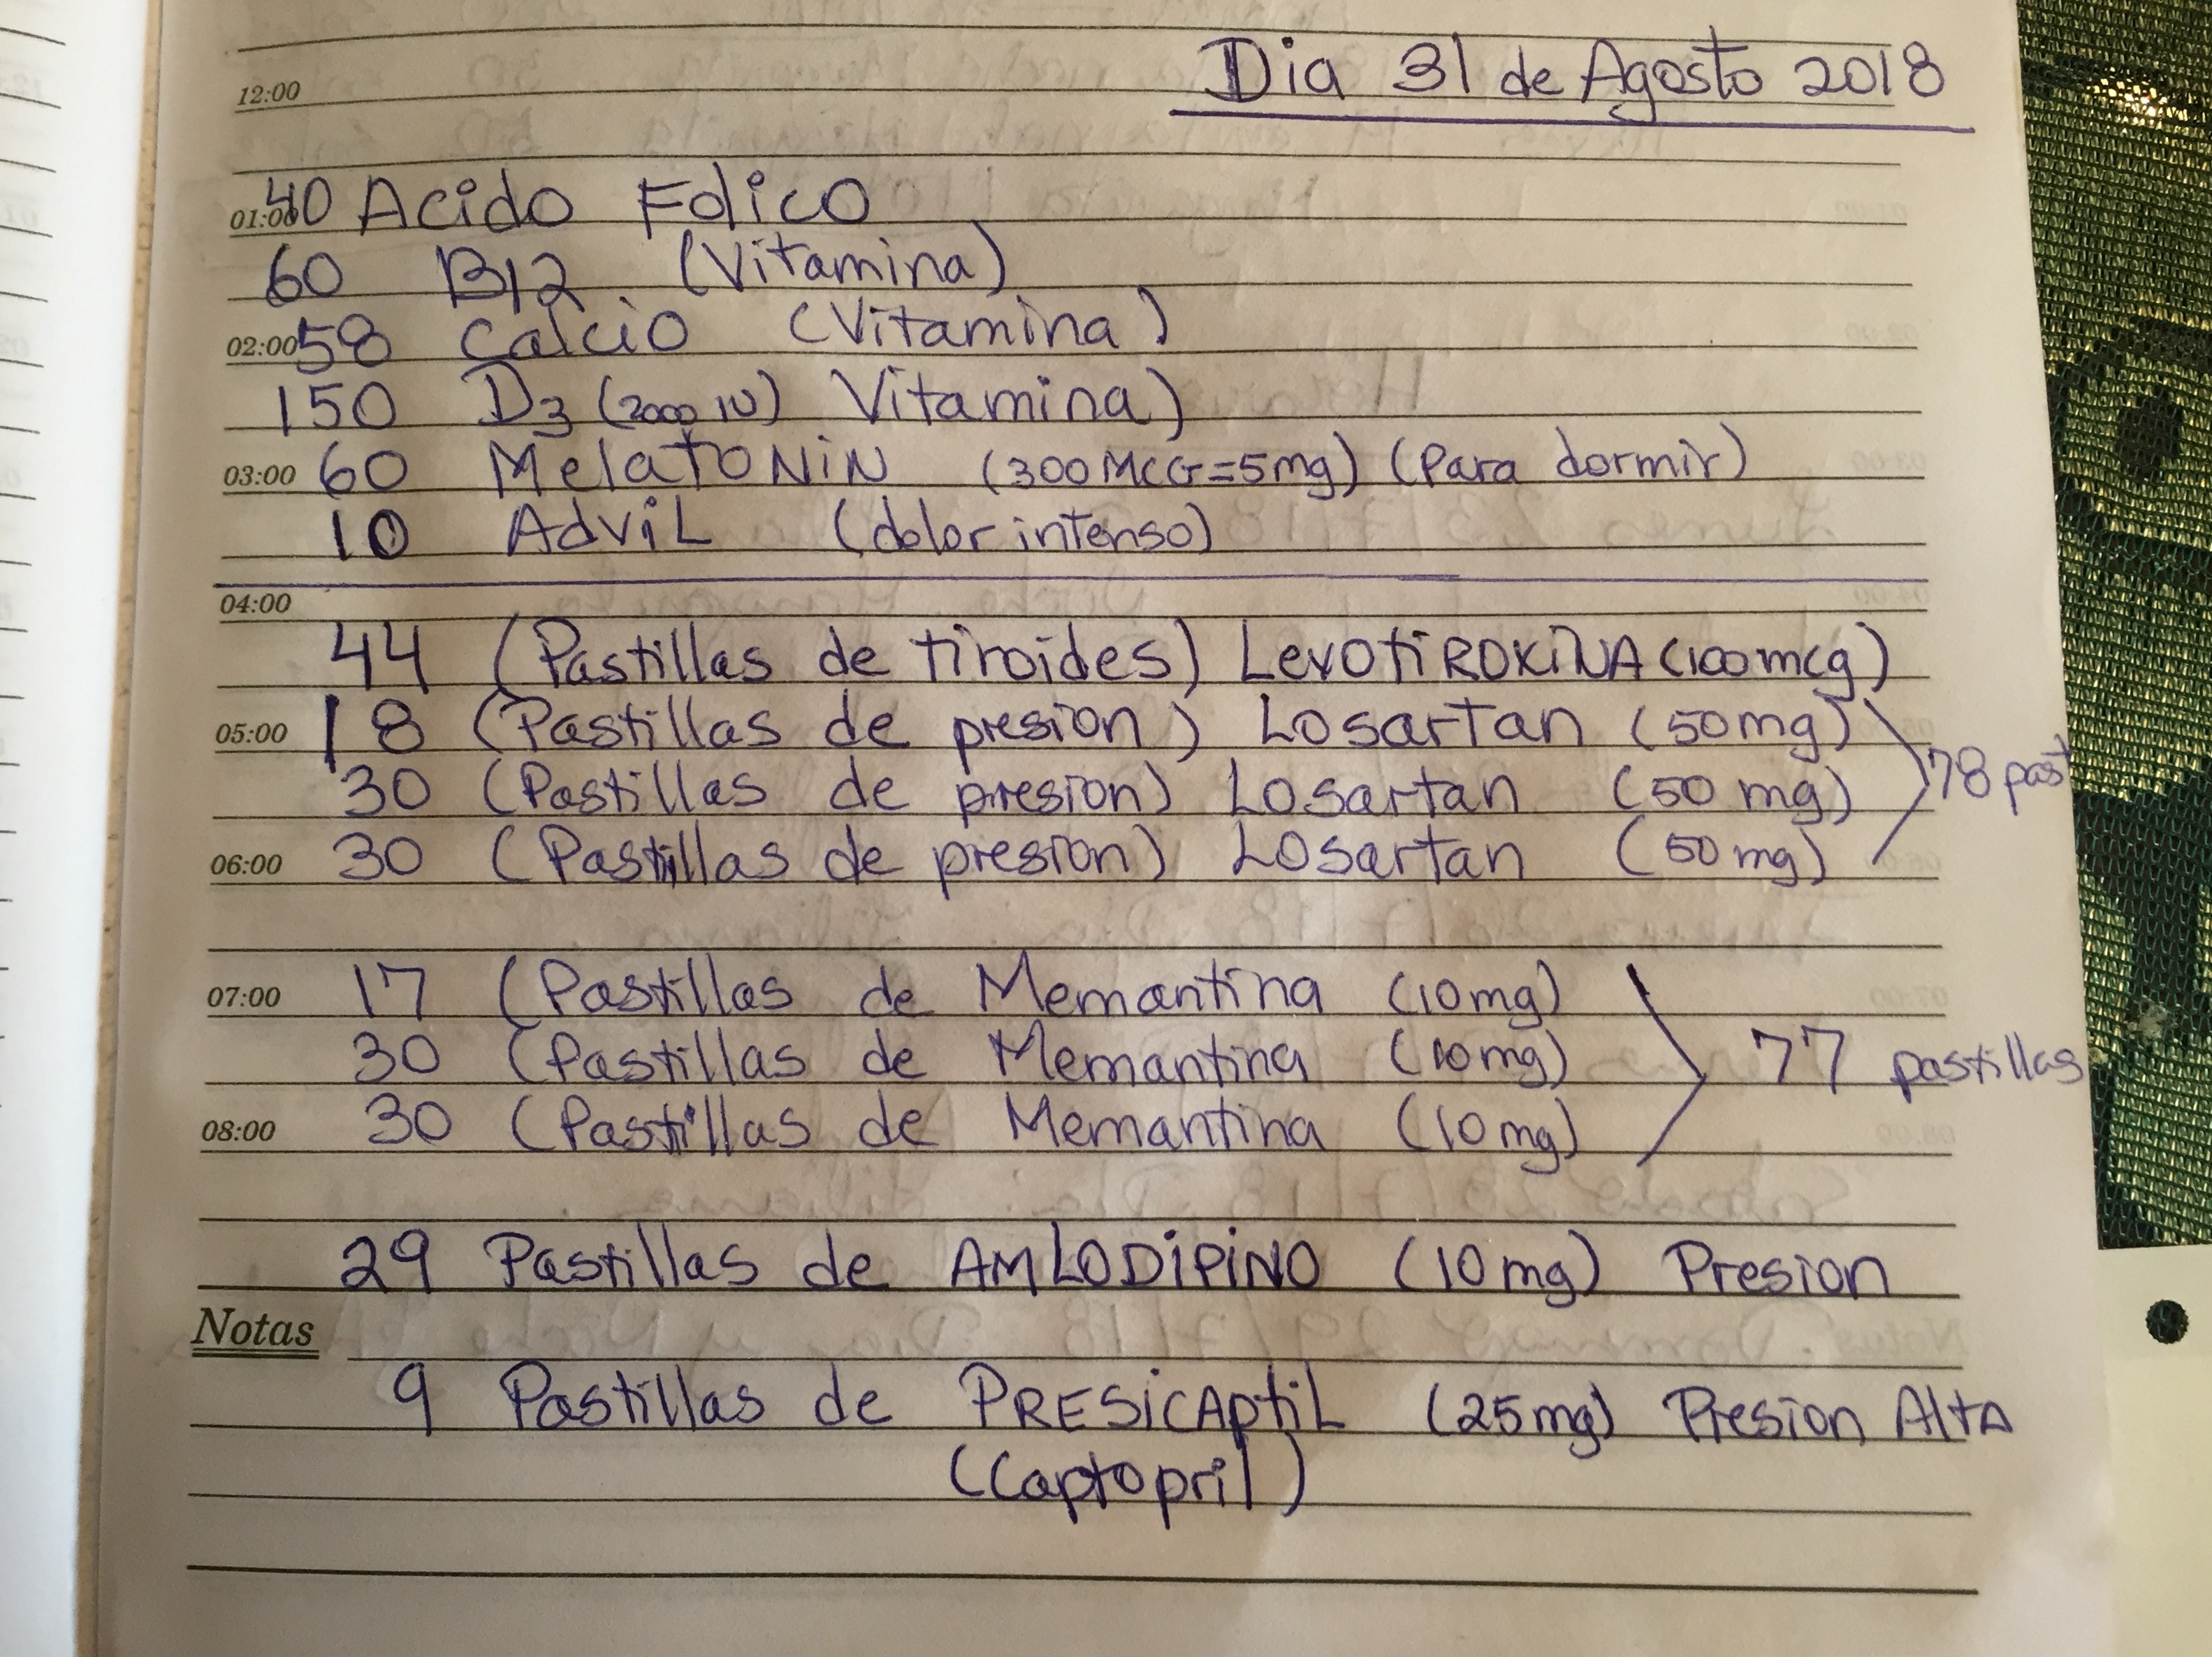 Dia 31 de Agosto 2018
12:00
01:00 40 Acido Folico
60 B12 (Vitamina)
02:00 58 Calcio (Vitamina)
150 D3 (2000 IU) Vitamina)
03:00 60 MelaTONiN (300 MCG=5mg) (Para dormir)
10 AdviL (dolor intenso)
04:00
44 (Pastillas de tiroides) LevotiROXiNA (100mcg)
05:00 18 (Pastillas de presion) Losartan (50mg)
30 (Pastillas de presion) Losartan (50 mg) 78 past
06:00 30 (Pastillas de presion) Losartan (50 mg)
07:00 17 (Pastillas de Memantina (10mg)
30 (Pastillas de Memantina (10mg) 77 pastillas
08:00 30 (Pastillas de Memantina (10mg)
29 Pastillas de AMLODiPiNO (10mg) Presion
Notas
9 Pastillas de PRESiCAptiL (25mg) Presion AltA
(Captopril)